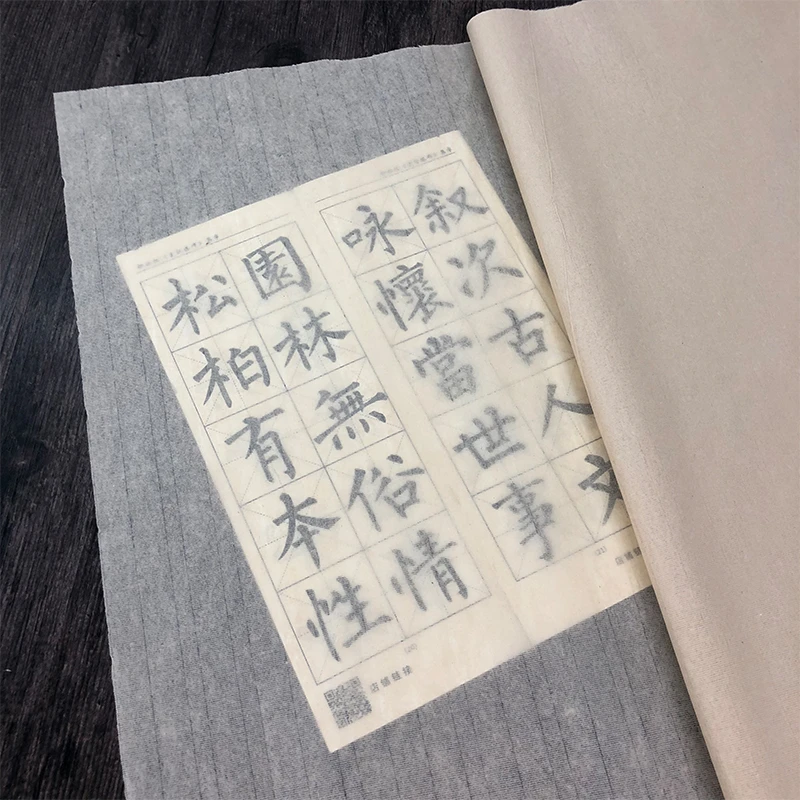 叙次古人文
咏懷當世事
園林無俗情
松柏有本性